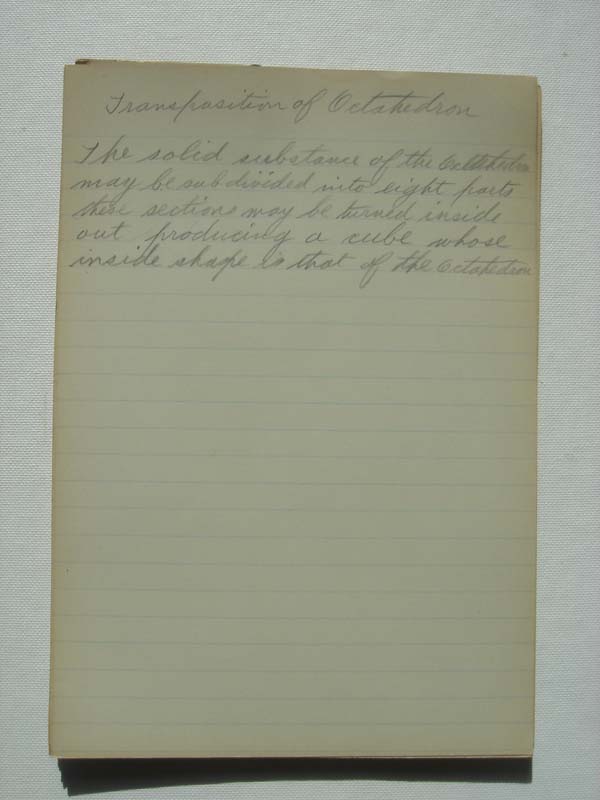 Transposition of Octahedron
The solid substance of the Octahedron
may be subdivided into eight parts
these sections may be turned inside
out producing a cube whose
inside shape is that of the Octahedron